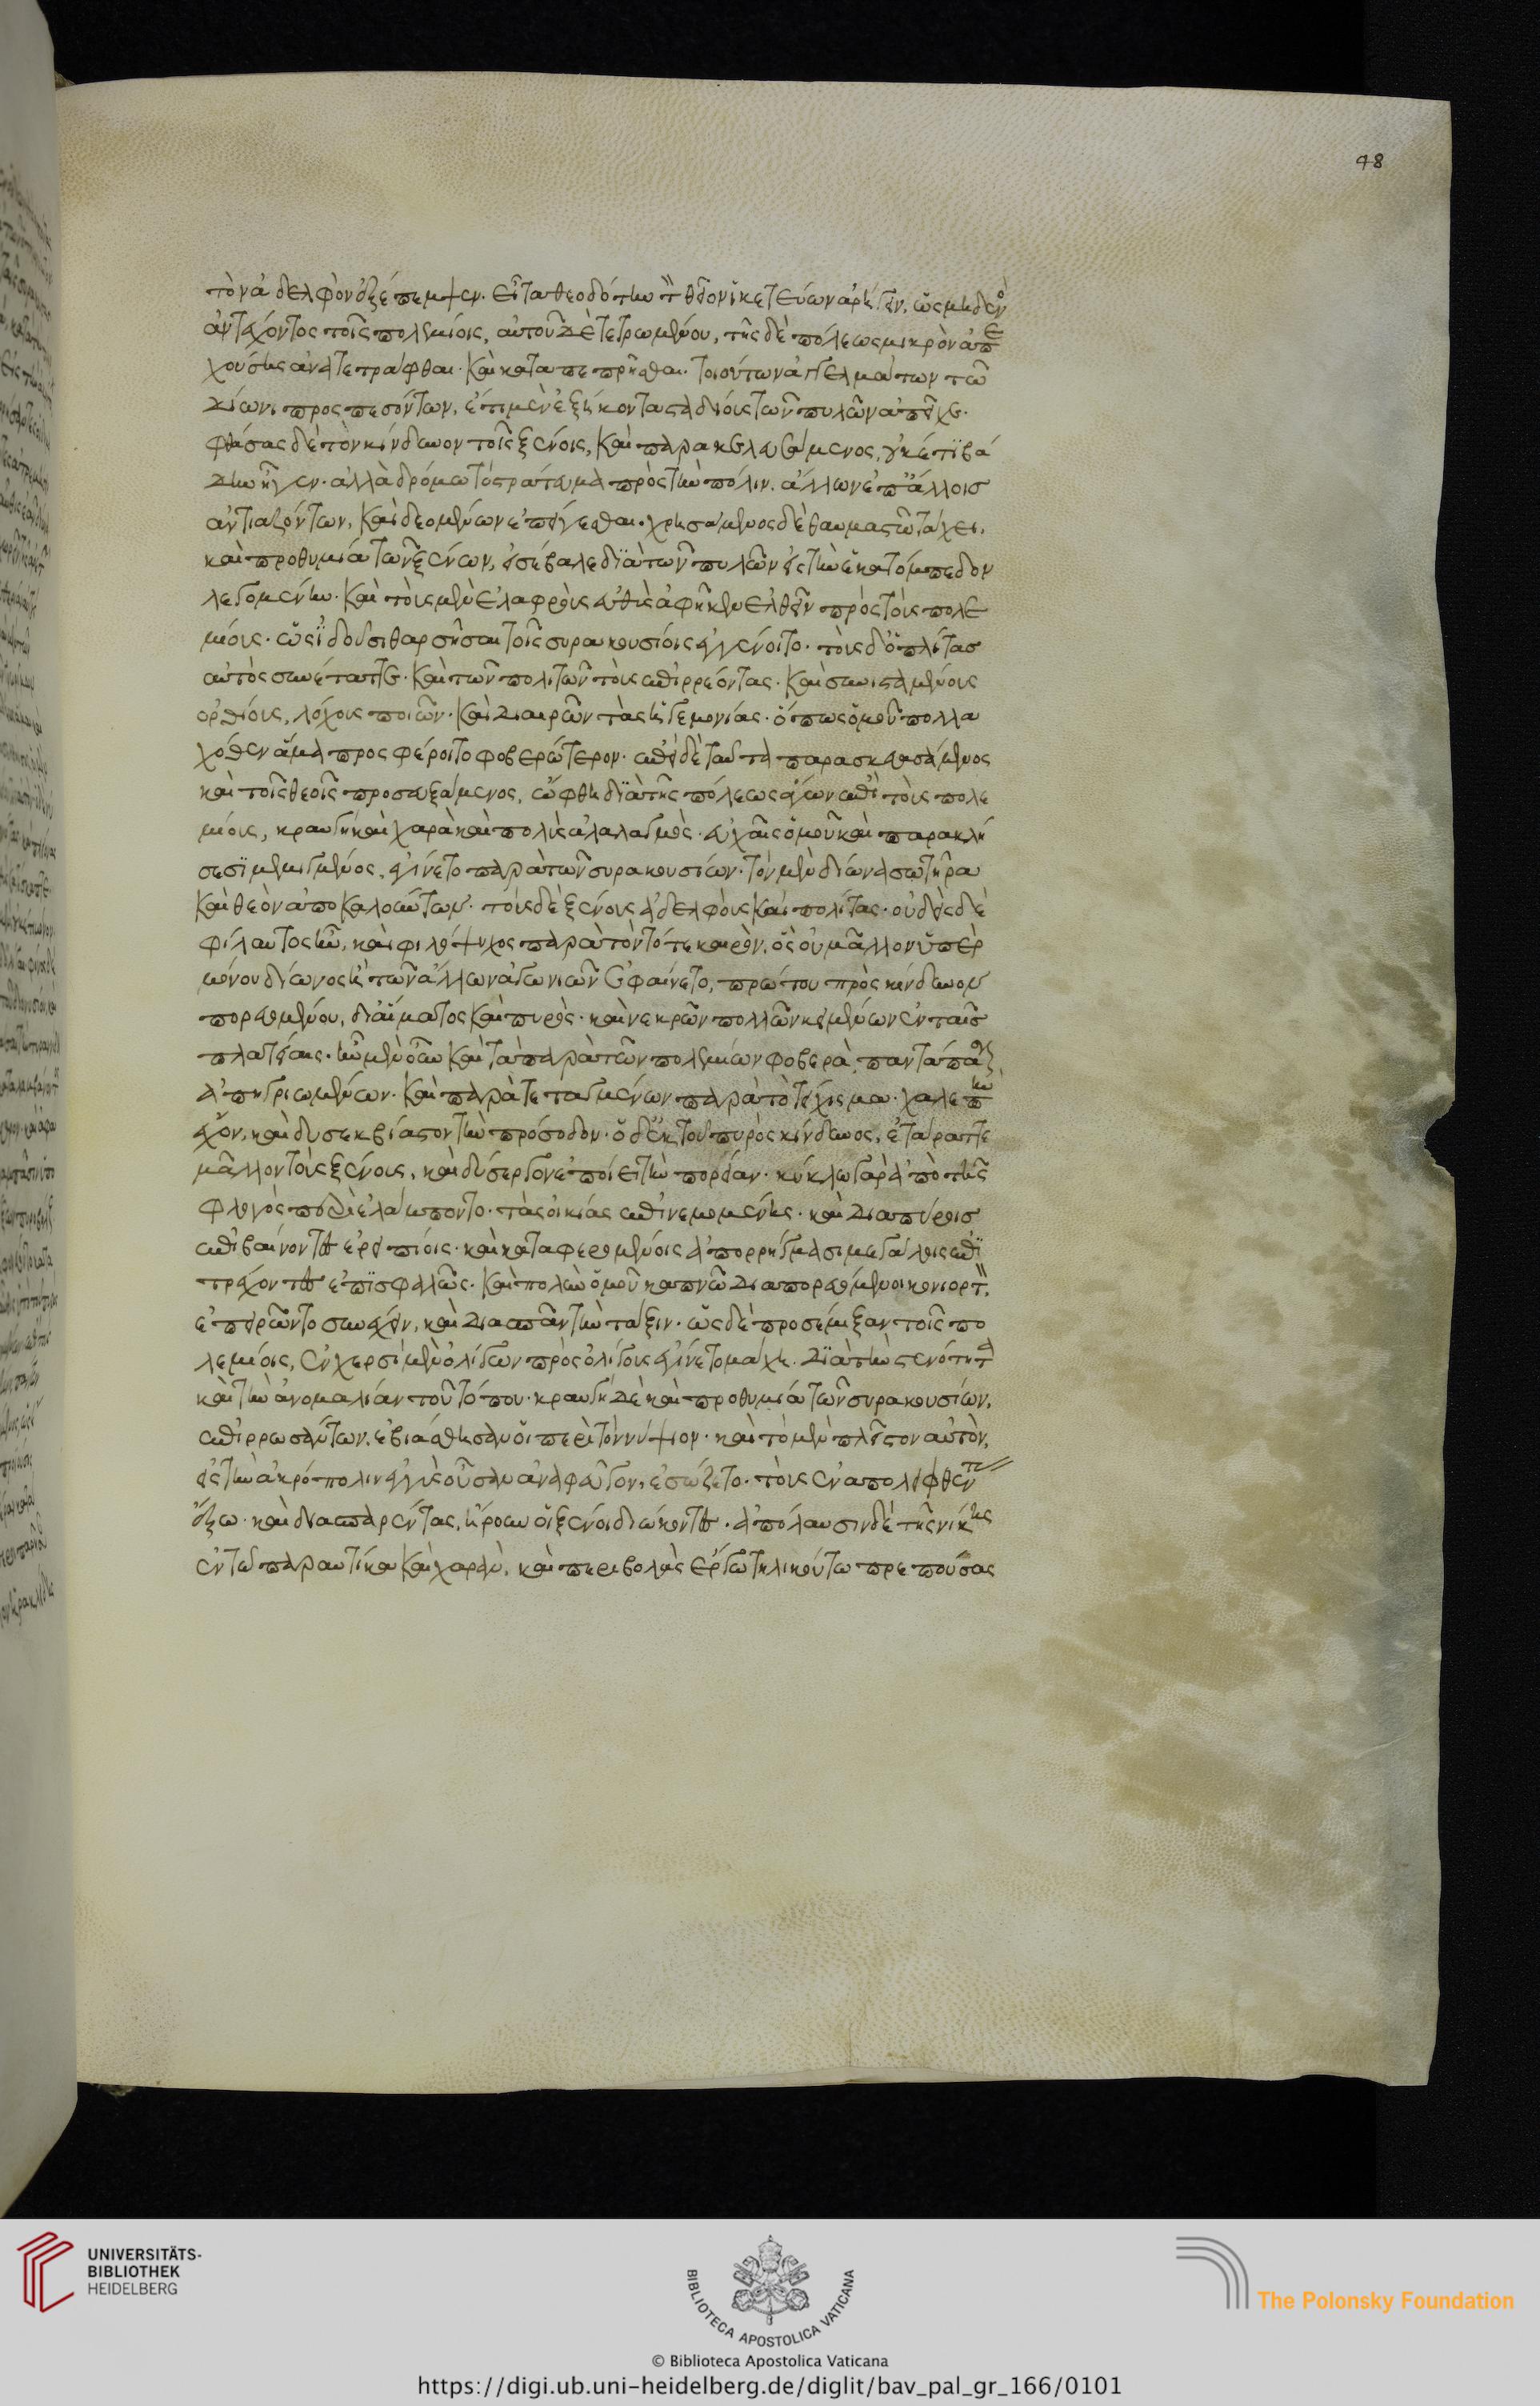 48
τὸν ἀδελφὸν ἐξέπεμψεν. εἶτα θεοδότην τὸν θεῖον ἱκετεύων ἀρήγειν, ὡς μηδενὸς
ἀντέχοντος τοῖς πολεμίοις, αὐτοῦ δὲ τετρωμένου, τῆς δὲ πόλεως μικρὸν ἀπε
χούσης ἀνατετράφθαι. καὶ καταπεπρῆσθαι. τοιούτων ἀγγελμάτων τῶ
δίωνι προσπεσόντων, ἔτι μὲν ἑξήκοντα σταδίους τῶν πυλῶν ἀπεῖχε.
φράσας δὲ τὸν κίνδυνον τοῖς ξένοις, καὶ παρακελευσάμενος, οὐκέτι βά
δην ἦγεν. ἀλλὰ δρόμω τὸ στράτευμα πρὸς τὴν πόλιν. ἄλλων ἐπ' ἄλλοις
ἀντιαζόντων, καὶ δεομένων ἐπείγεσθαι. χρησάμενος δὲ θαυμαστῶ τάχει,
καὶ προθυμία τῶν ξένων, εἰσέβαλε διὰ τῶν πυλῶν εἰς τὴν ἑκατόμπεδον
λεγομένην. καὶ τοὺς μὲν ἐλαφροὺς εὐθὺς ἀφῆκεν ἐλθεῖν πρὸς τοὺς πολε
μίους. ὡς ἰδοῦσι θαρσῆσαι τοῖς συρακουσίοις ἐγγένοιτο. τοὺς δ' ὁπλίτας
αὐτὸς συνέταττε. καὶ τῶν πολιτῶν τοὺς ἐπιρρέοντας. καὶ συνισταμένους
ὀρθίους, λόχους ποιῶν. καὶ διαιρῶν τὰς ἡγεμονίας. ὅπως ὁμοῦ πολλα
χόθεν ἅμα προσφέροιτο φοβερώτερον. ἐπεὶ δὲ ταῦτα παρασκευασάμενος
καὶ τοῖς θεοῖς προσευξάμενος, ὤφθη διὰ τῆς πόλεως ἄγων ἐπὶ τοὺς πολε
μίους, κραυγὴ καὶ χαρὰ καὶ πολὺς ἀλαλαγμὸς. εὐχαῖς ὁμοῦ καὶ παρακλή
σεσι μεμιγμένος, ἐγίνετο παρὰ τῶν συρακουσίων. τὸν μὲν δίωνα σωτῆρα
καὶ θεὸν ἀποκαλούντων. τοὺς δὲ ξένους ἀδελφοὺς καὶ πολίτας. οὐδεὶς δὲ
φίλαυτος ἦν, καὶ φιλόψυχος παρὰ τὸν τότε καιρὸν, ὃς οὐ μᾶλλον ὑπὲρ
μόνου δίωνος ἢ τῶν ἄλλων ἀγωνιῶν ἐφαίνετο, πρώτου πρὸς κίνδυνον
πορευομένου, δι' αἵματος καὶ πυρὸς. καὶ νεκρῶν πολλῶν κειμένων ἐν ταῖς
πλατείαις. ἦν μὲν οὖν καὶ τὰ παρὰ τῶν πολεμίων φοβερὰ, παντάπασιν
ἀπηγριωμένων. καὶ παρατεταγμένων παρὰ τὸ τείχισμα. χαλεπὴν
ἔχον, καὶ δυσεκβίαστον τὴν πρόσοδον. ὁ δ' ἐκ τοῦ πυρὸς κίνδυνος, ἐτάραττε
μᾶλλον τοὺς ξένους, καὶ δύσεργον ἐποίει τὴν πορείαν. κύκλω γὰρ ἀπὸ τῆς
φλογὸς περιελάμποντο. τὰς οἰκίας ἐπινεμομένης. καὶ διαπύροις
ἐπιβαίνοντες ἐρειπίοις. καὶ καταφερομένοις ἀπορρήγμασι μεγάλοις ἐπι
τρέχοντες ἐπισφαλῶς. καὶ πολὺν ὁμοῦ καπνῶ διαπορευόμενοι κονιορτὸν,
ἐπειρῶντο συνέχειν, καὶ διασπᾶν τὴν τάξιν. ὡς δὲ προσέμιξαν τοῖς πο
λεμίοις, ἐν χερσὶ μὲν ὀλίγων πρὸς ὀλίγους ἐγίνετο μάχη. διὰ τὴν στενότητα
καὶ τὴν ἀνομαλίαν τοῦ τόπου. κραυγῆ δὲ καὶ προθυμία τῶν συρακουσίων,
ἐπιρρωσάντων, ἐβιάσθησαν οἱ περὶ τὸν νύψιον. καὶ τὸ μὲν πλεῖστον αὐτῶν,
εἰς τὴν ἀκρόπολιν ἐγγὺς οὖσαν ἀναφεῦγον, ἐσώζετο. τοὺς ἐναπολειφθέντας
ἔξω. καὶ διασπαρέντας, ἥρουν οἱ ξένοι διώκοντες. ἀπόλαυσιν δὲ τῆς νίκης
ἐν τῶ παραυτίκα καὶ χαρὰν, καὶ περιβολὰς ἔργω τηλικούτω πρεπούσας
UNIVERSITÄTS-
BIBLIOTHEK
HEIDELBERG
BIBLIOTECA APOSTOLICA VATICANA
The Polonsky Foundation
© Biblioteca Apostolica Vaticana
https://digi.ub.uni-heidelberg.de/diglit/bav_pal_gr_166/0101